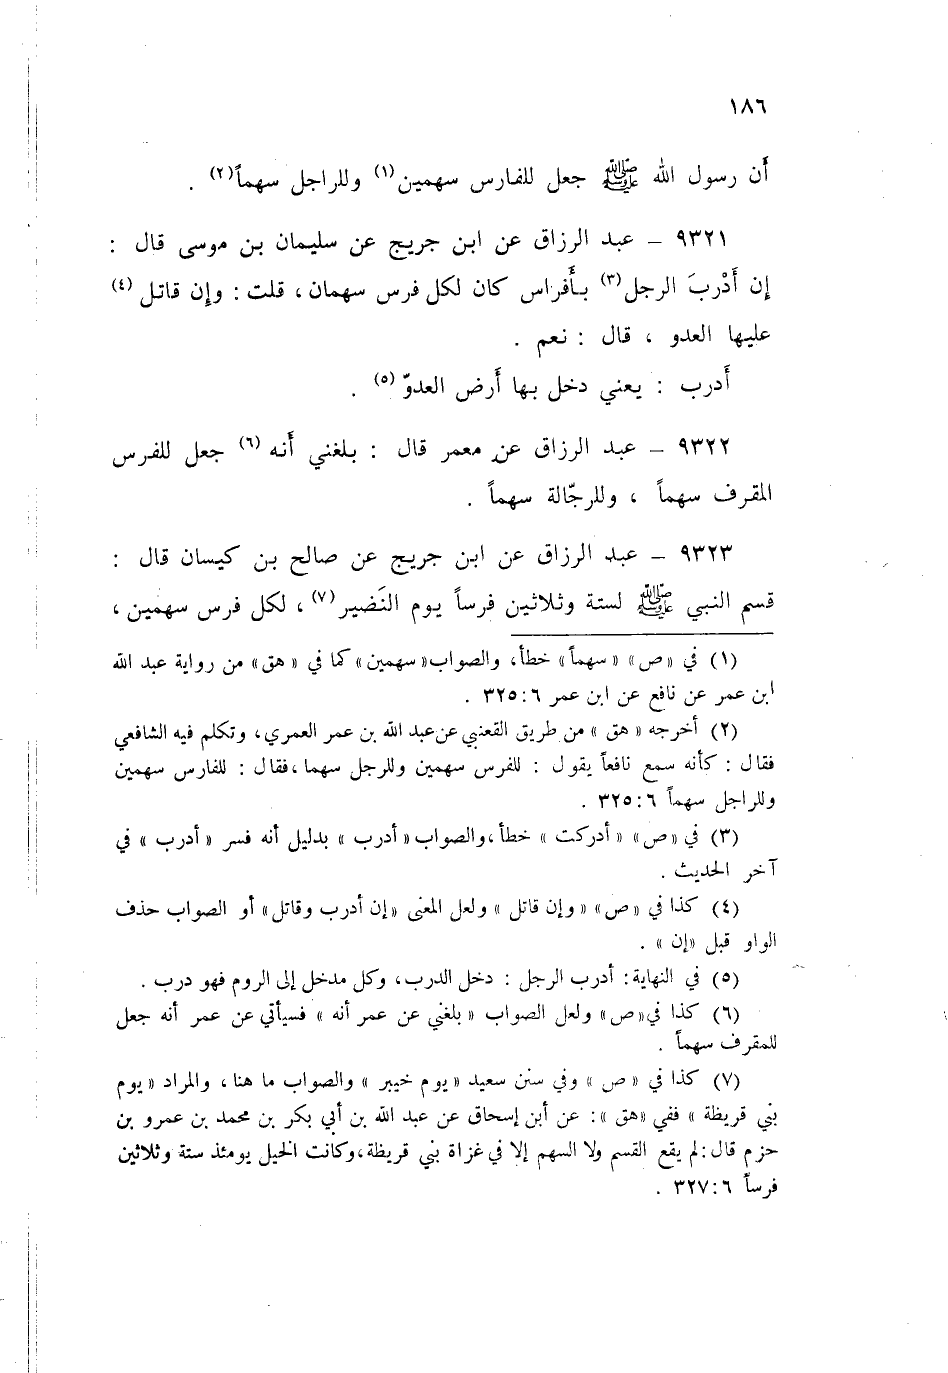 ١٨٦
أن رسول الله ﷺ جعل للفارس سهمين (١) وللراجل سهماً (٢) .
٩٣٢١ – عبد الرزاق عن ابن جريج عن سليمان بن موسى قال :
إن أَدْربَ الرجل (٣) بأَفراس كان لكل فرس سهمان ، قلت : وإن قاتل (٤)
عليها العدو ، قال : نعم .
أَدرب : يعني دخل بها أَرض العدوّ (٥) .
٩٣٢٢ – عبد الرزاق عن معمر قال : بلغني أَنه (٦) جعل للفرس
المقرف سهماً ، وللرجّالة سهماً .
٩٣٢٣ – عبد الرزاق عن ابن جريج عن صالح بن كيسان قال :
قسم النبي ﷺ لستة وثلاثين فرساً يوم النَضير (٧) ، لكل فرس سهمين ،
(١) في «ص» «سهماً» خطأ، والصواب «سهمين» كما في «هق» من رواية عبد الله
ابن عمر عن نافع عن ابن عمر ٦ : ٣٢٥ .
(٢) أخرجه «هق» من طريق القعنبي عن عبد الله بن عمر العمري، وتكلم فيه الشافعي
فقال : كأنه سمع نافعاً يقول : للفرس سهمين وللرجل سهما ،فقال : للفارس سهمين
وللراجل سهماً ٦ : ٣٢٥ .
(٣) في «ص» «أدركت» خطأ ،والصواب «أدرب» بدليل أنه فسر «أدرب» في
آخر الحديث .
(٤) كذا في «ص» «وإن قاتل» ولعل المعنى «إن أدرب وقاتل» أو الصواب حذف
الواو قبل «إن» .
(٥) في النهاية : أدرب الرجل : دخل الدرب، وكل مدخل إلى الروم فهو درب .
(٦) كذا في «ص» ولعل الصواب «بلغني عن عمر أنه» فسيأتي عن عمر أنه جعل
للمقرف سهماً .
(٧) كذا في «ص» وفي سنن سعيد «يوم خيبر» والصواب ما هنا، والمراد «يوم
بني قريظة» ففي «هق» : عن أبن إسحاق عن عبد الله بن أبي بكر بن محمد بن عمرو بن
حزم قال : لم يقع القسم ولا السهم إلا في غزاة بني قريظة، وكانت الخيل يومئذ ستة وثلاثين
فرساً ٦ : ٣٢٧ .